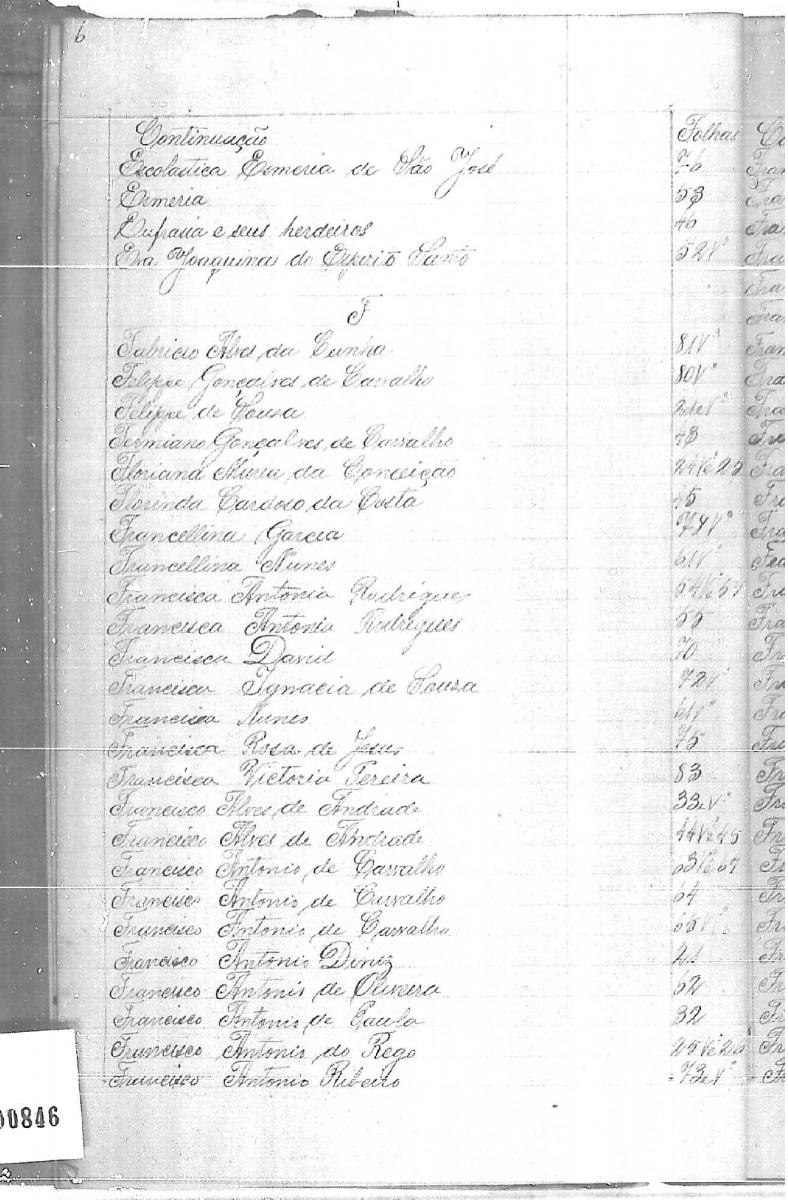 6
Continuação Folhas
Escolastica Esmeria de São José 76
Esmeria 53
Eufrasia e seus herdeiros 46
Eva Joaquina do Espirito Santo 52Vº
F
Fabricio Alves da Cunha 81Vº
Felippe Gonçalves de Carvalho 80Vº
Felippe de Souza 2 e Vº
Firmiano Gonçalves de Carvalho 43
Floriana Maria da Conceição 24Vº e 25
Florinda Cardoso da Costa 45
Francellina Garcia 79Vº
Francellina Nunes 61Vº
Francisca Antonia Rodrigues
Francisca Antonia Rodrigues 55
Francisca David 70
Francisca Ignacia de Souza 72Vº
Francisca Nunes 61Vº
Francisca Rosa de Jesus 75
Francisca Victoria Pereira 83
Francisco Alves de Andrade 33 e Vº
Francisco Alves de Andrade 44Vº e 45
Francisco Antonio de Carvalho 63Vº e 64
Francisco Antonio de Carvalho 64
Francisco Antonio de Carvalho 65Vº
Francisco Antonio Diniz 21
Francisco Antonio de Oliveira 52
Francisco Antonio de Paula 32
Francisco Antonio do Rego 25Vº e 26
Francisco Antonio Ribeiro 73 e Vº
00846